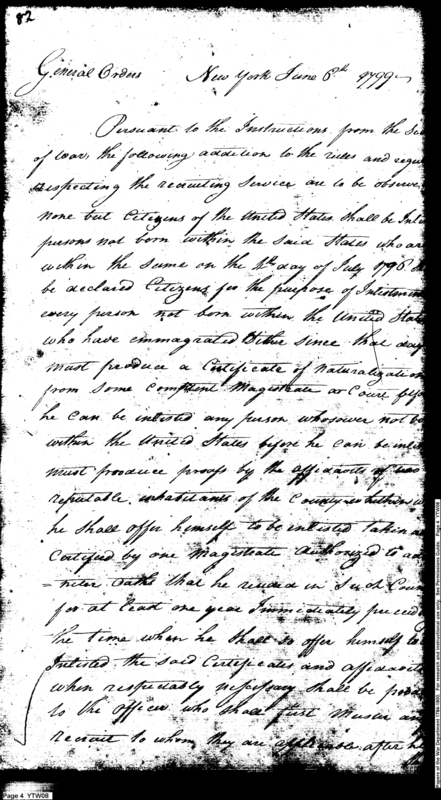 82
General Orders New York June 6th 1799
Pursuant to the Instructions from the Se
of War, the following addition to the rules and regu
respecting the recruiting service are to be observe
none but Citizens of the United States shall be Inli
persons not born within the said States who are
within the same on the 4th day of July 1776 sh
be declared Citizens for the purpose of Inlistment
every person not born within the United Stat
who have emmagrated thither since that day
must produce a Certificate of Naturalization
from some Competent Magistrate or Court befo
he can be inlisted any person whosoever not bo
within the United States before he can be inli
must produce proofs by the affidavits of two
reputable inhabitants of the County
he shall offer himself to be inlisted taken a
Certified by one Magistrate Authorized to ad
=nister Oaths that he resided in Such Coun
for at least one year Immediately preced
the time when he shall so offer himself to b
Inlisted the said Certificates and affidavits
when respectably necessary shall be produ
to the officer who shall first Muster any
recruit to whom they are applicable after he
Page 4 YTW08